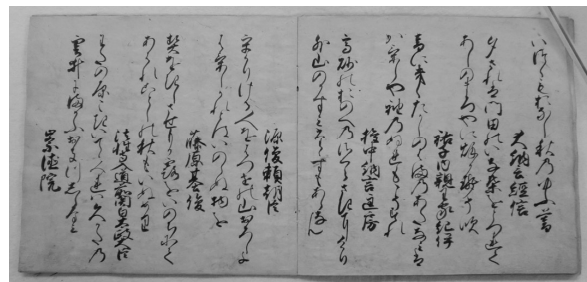 いつくもおなし秋乃夕暮
大納言經信
夕されは門田のいな葉をとつれて
あしのまろやに秋風そ吹
祐子内親王家紀伊
音に聞たかしの濱乃あたなみは
かけしや袖乃ぬれもこそすれ
権中納言匡房
高砂のおのへのさくらさきにけり
と山のかすみたゝすもあらなん
源俊頼朝臣
うかりける人をはつせの山おろしよ
はけしかれとはいのらぬ物を
藤原基俊
契をきしさせもか露をいのちにて
あはれことしの秋もいぬめり
法性寺入道前関白太政大臣
わたの原こき出てみれは久かたの
雲井にまかふおきつしらなみ
崇徳院